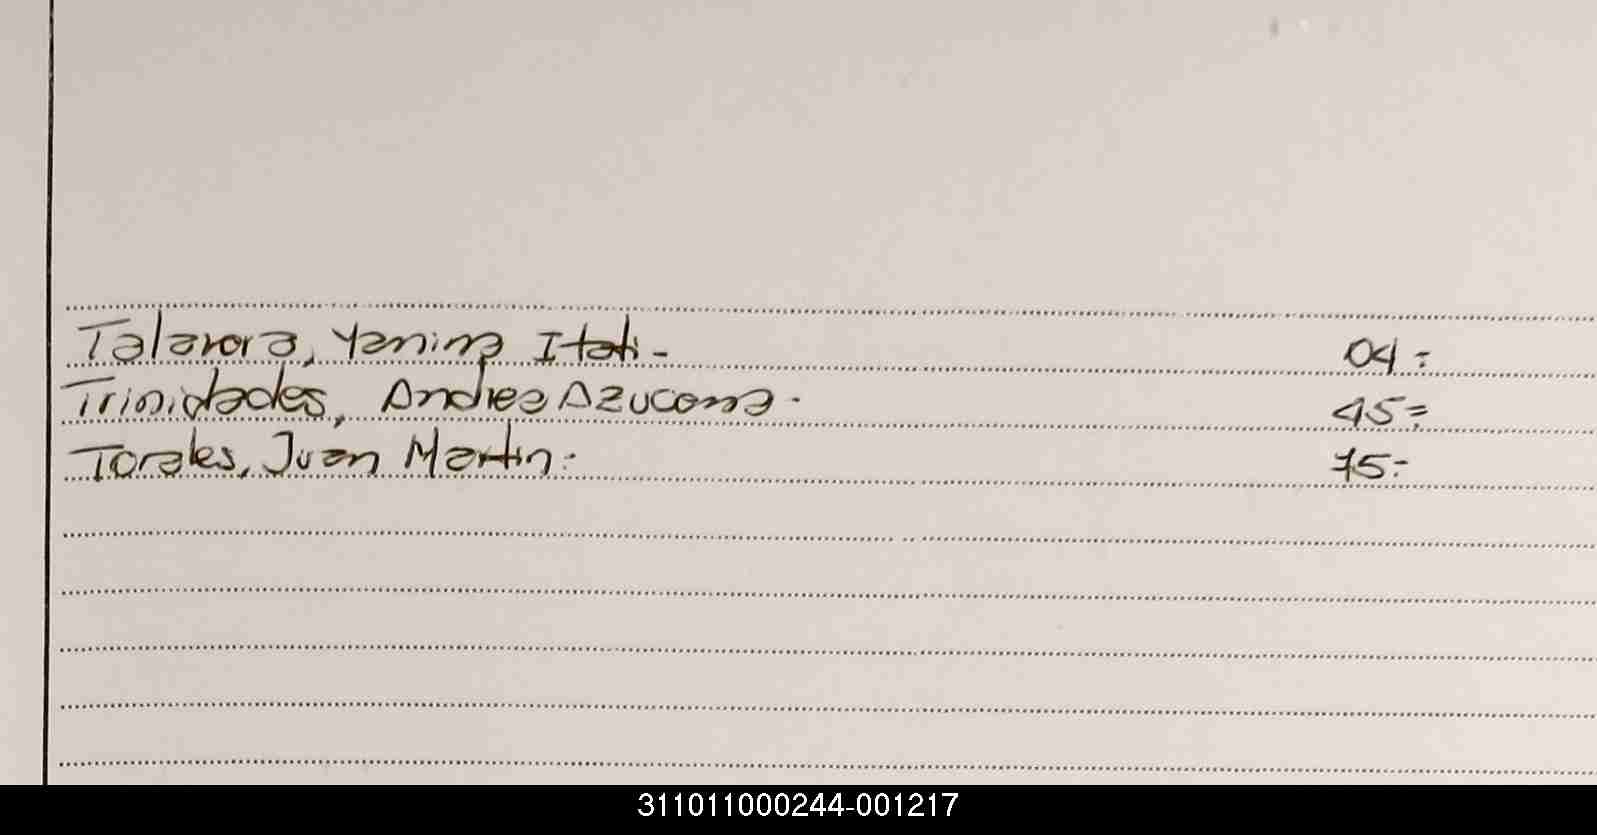 Talavera, Yanina Itati- 04-
Trinidades, Andrea Azucena- 45-
Torales, Juan Martin- 75-
311011000244-001217